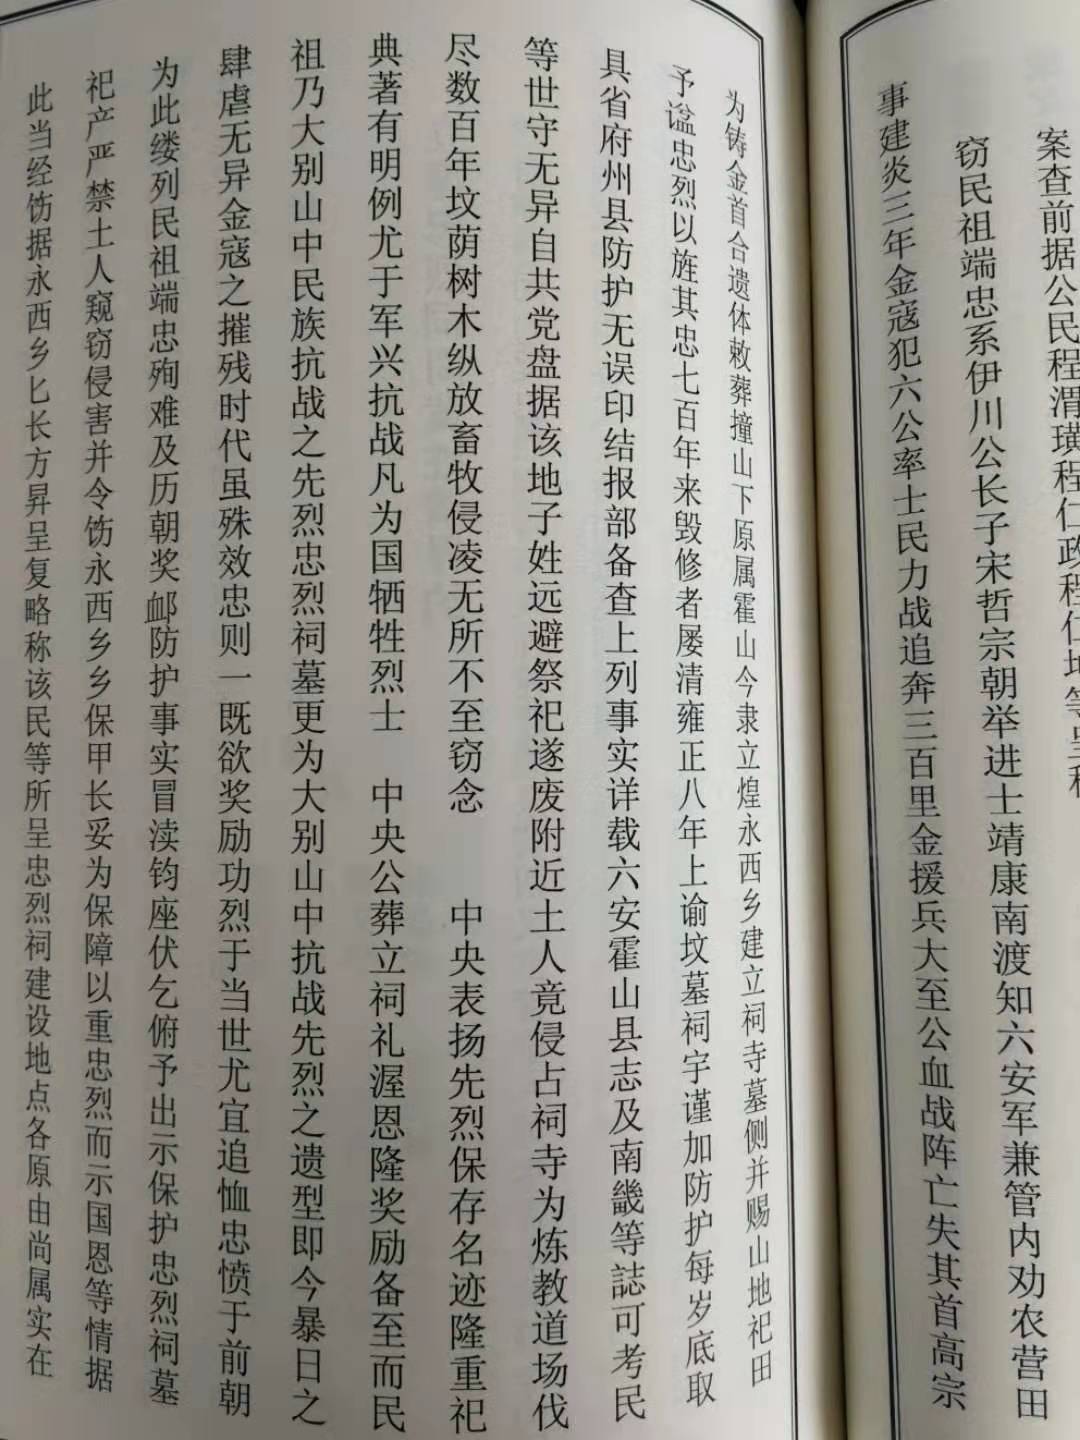 案查前据公民程渭璜程仁政程仁地等呈称
窃民祖端忠系伊川公长子宋哲宗朝举进士靖康南渡知六安军兼管内劝农营田
事建炎三年金寇犯六公率士民力战追奔三百里金援兵大至公血战阵亡失其首高宗
为铸金首合遗体敕葬撞山下原属霍山今隶立煌永西乡建立祠寺墓侧并赐山地祀田
予谥忠烈以旌其忠七百年来毁修者屡清雍正八年上谕坟墓祠宇谨加防护每岁底取
具省府州县防护无误印结报部备查上列事实详载六安霍山县志及南畿等誌可考民
等世守无异自共党盘据该地子姓远避祭祀遂废附近土人竟侵占祠寺为炼教道场伐
尽数百年坟荫树木纵放畜牧侵凌无所不至窃念 中央表扬先烈保存名迹隆重祀
典著有明例尤于军兴抗战凡为国牺牲烈士 中央公葬立祠礼渥恩隆奖励备至而民
祖乃大别山中民族抗战之先烈忠烈祠墓更为大别山中抗战先烈之遗型即今暴日之
肆虐无异金寇之摧残时代虽殊效忠则一既欲奖励功烈于当世尤宜追恤忠愤于前朝
为此缕列民祖端忠殉难及历朝奖卹防护事实冒渎钧座伏乞俯予出示保护忠烈祠墓
祀产严禁土人窥窃侵害并令饬永西乡乡保甲长妥为保障以重忠烈而示国恩等情据
此当经饬据永西乡匕长方昇呈复略称该民等所呈忠烈祠建设地点各原由尚属实在